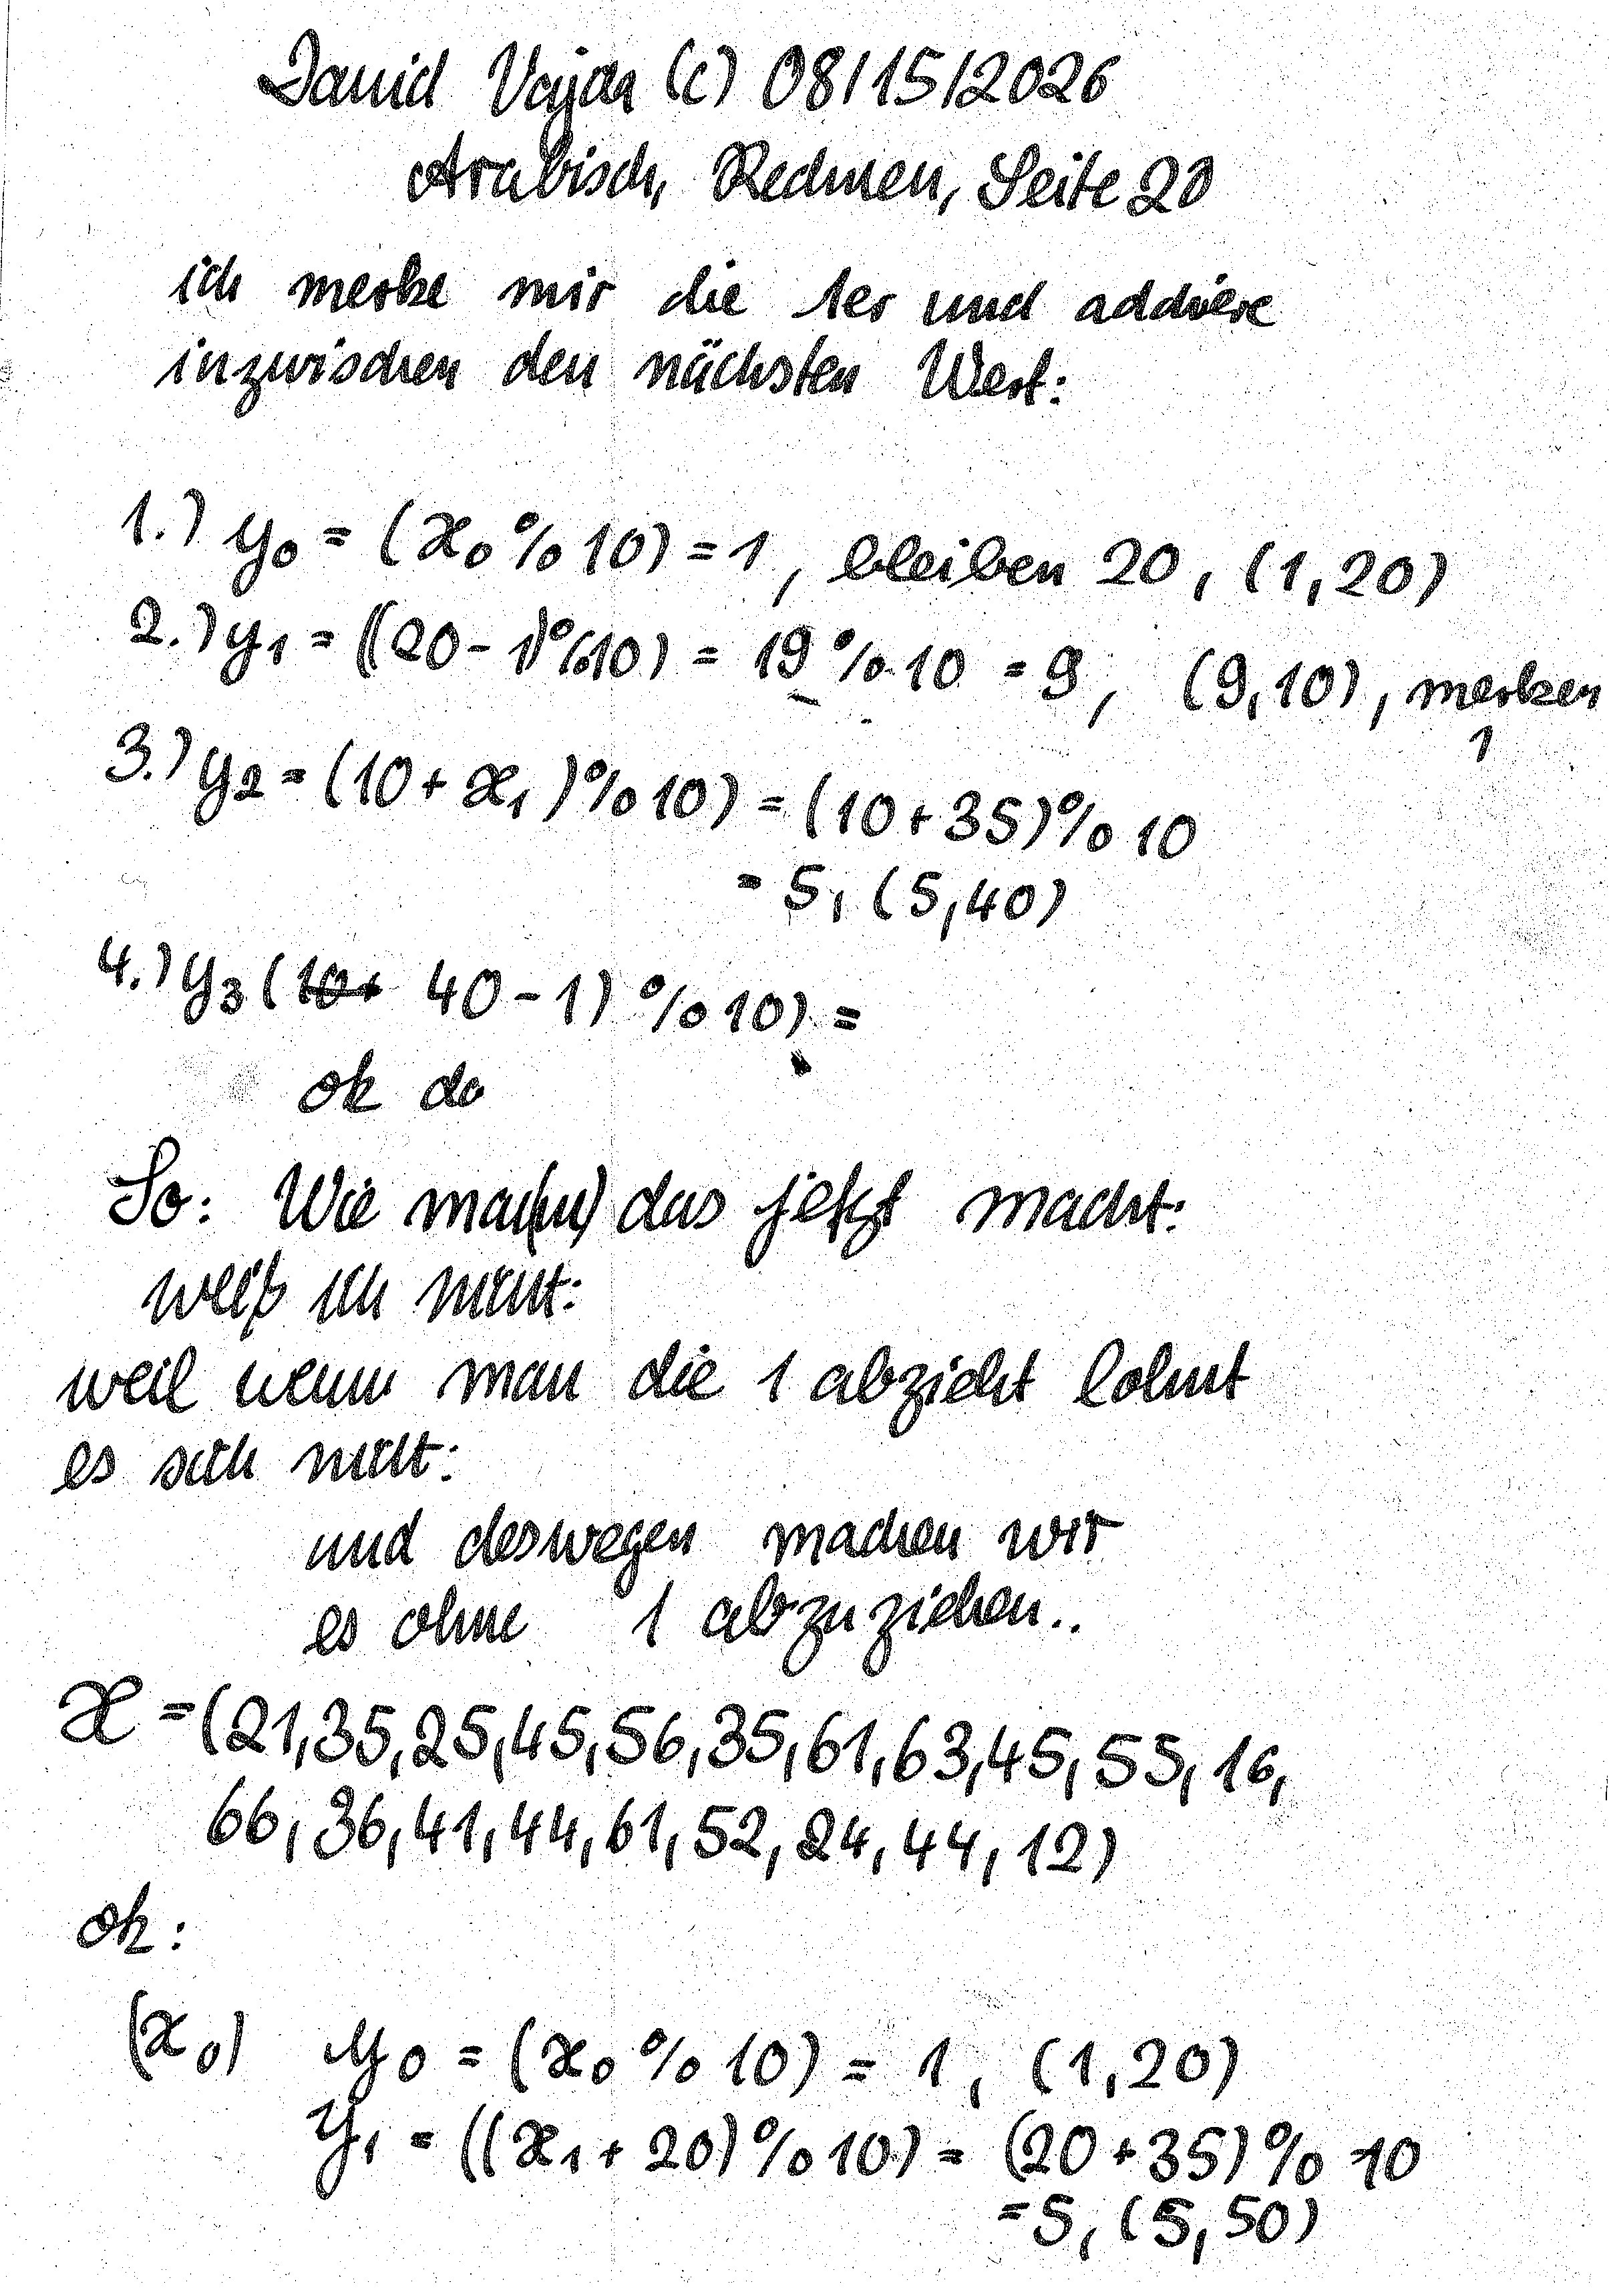 David Vajda (c) 08/15/2026
Arabisch, Rechnen, Seite 20
ich merke mir die 1er und addiere
inzwischen den nächsten Wert:
1.) y₀ = (x₀ % 10) = 1, bleiben 20, (1,20)
2.) y₁ = ((20 - 1)%10) = 19 % 10 = 9, (9,10), merken
1
3.) y₂ = (10 + x₁)%10) = (10 + 35)% 10
= 5, (5,40)
4.) y₃ (10+ 40 - 1) % 10) =
ok do
So: Wie ma(n) das jetzt macht:
weiß ich nicht:
weil wenn man die 1 abzieht lohnt
es sich nicht:
und deswegen machen wir
es ohne 1 abzuziehen..
x = (21,35,25,45,56,35,61,63,45,55,16,
66,36,41,44,61,52,24,44,12)
ok:
(x₀) y₀ = (x₀ % 10) = 1, (1,20)
y₁ = ((x₁ + 20)%10) = (20+35)% 10
=5, (5,50)